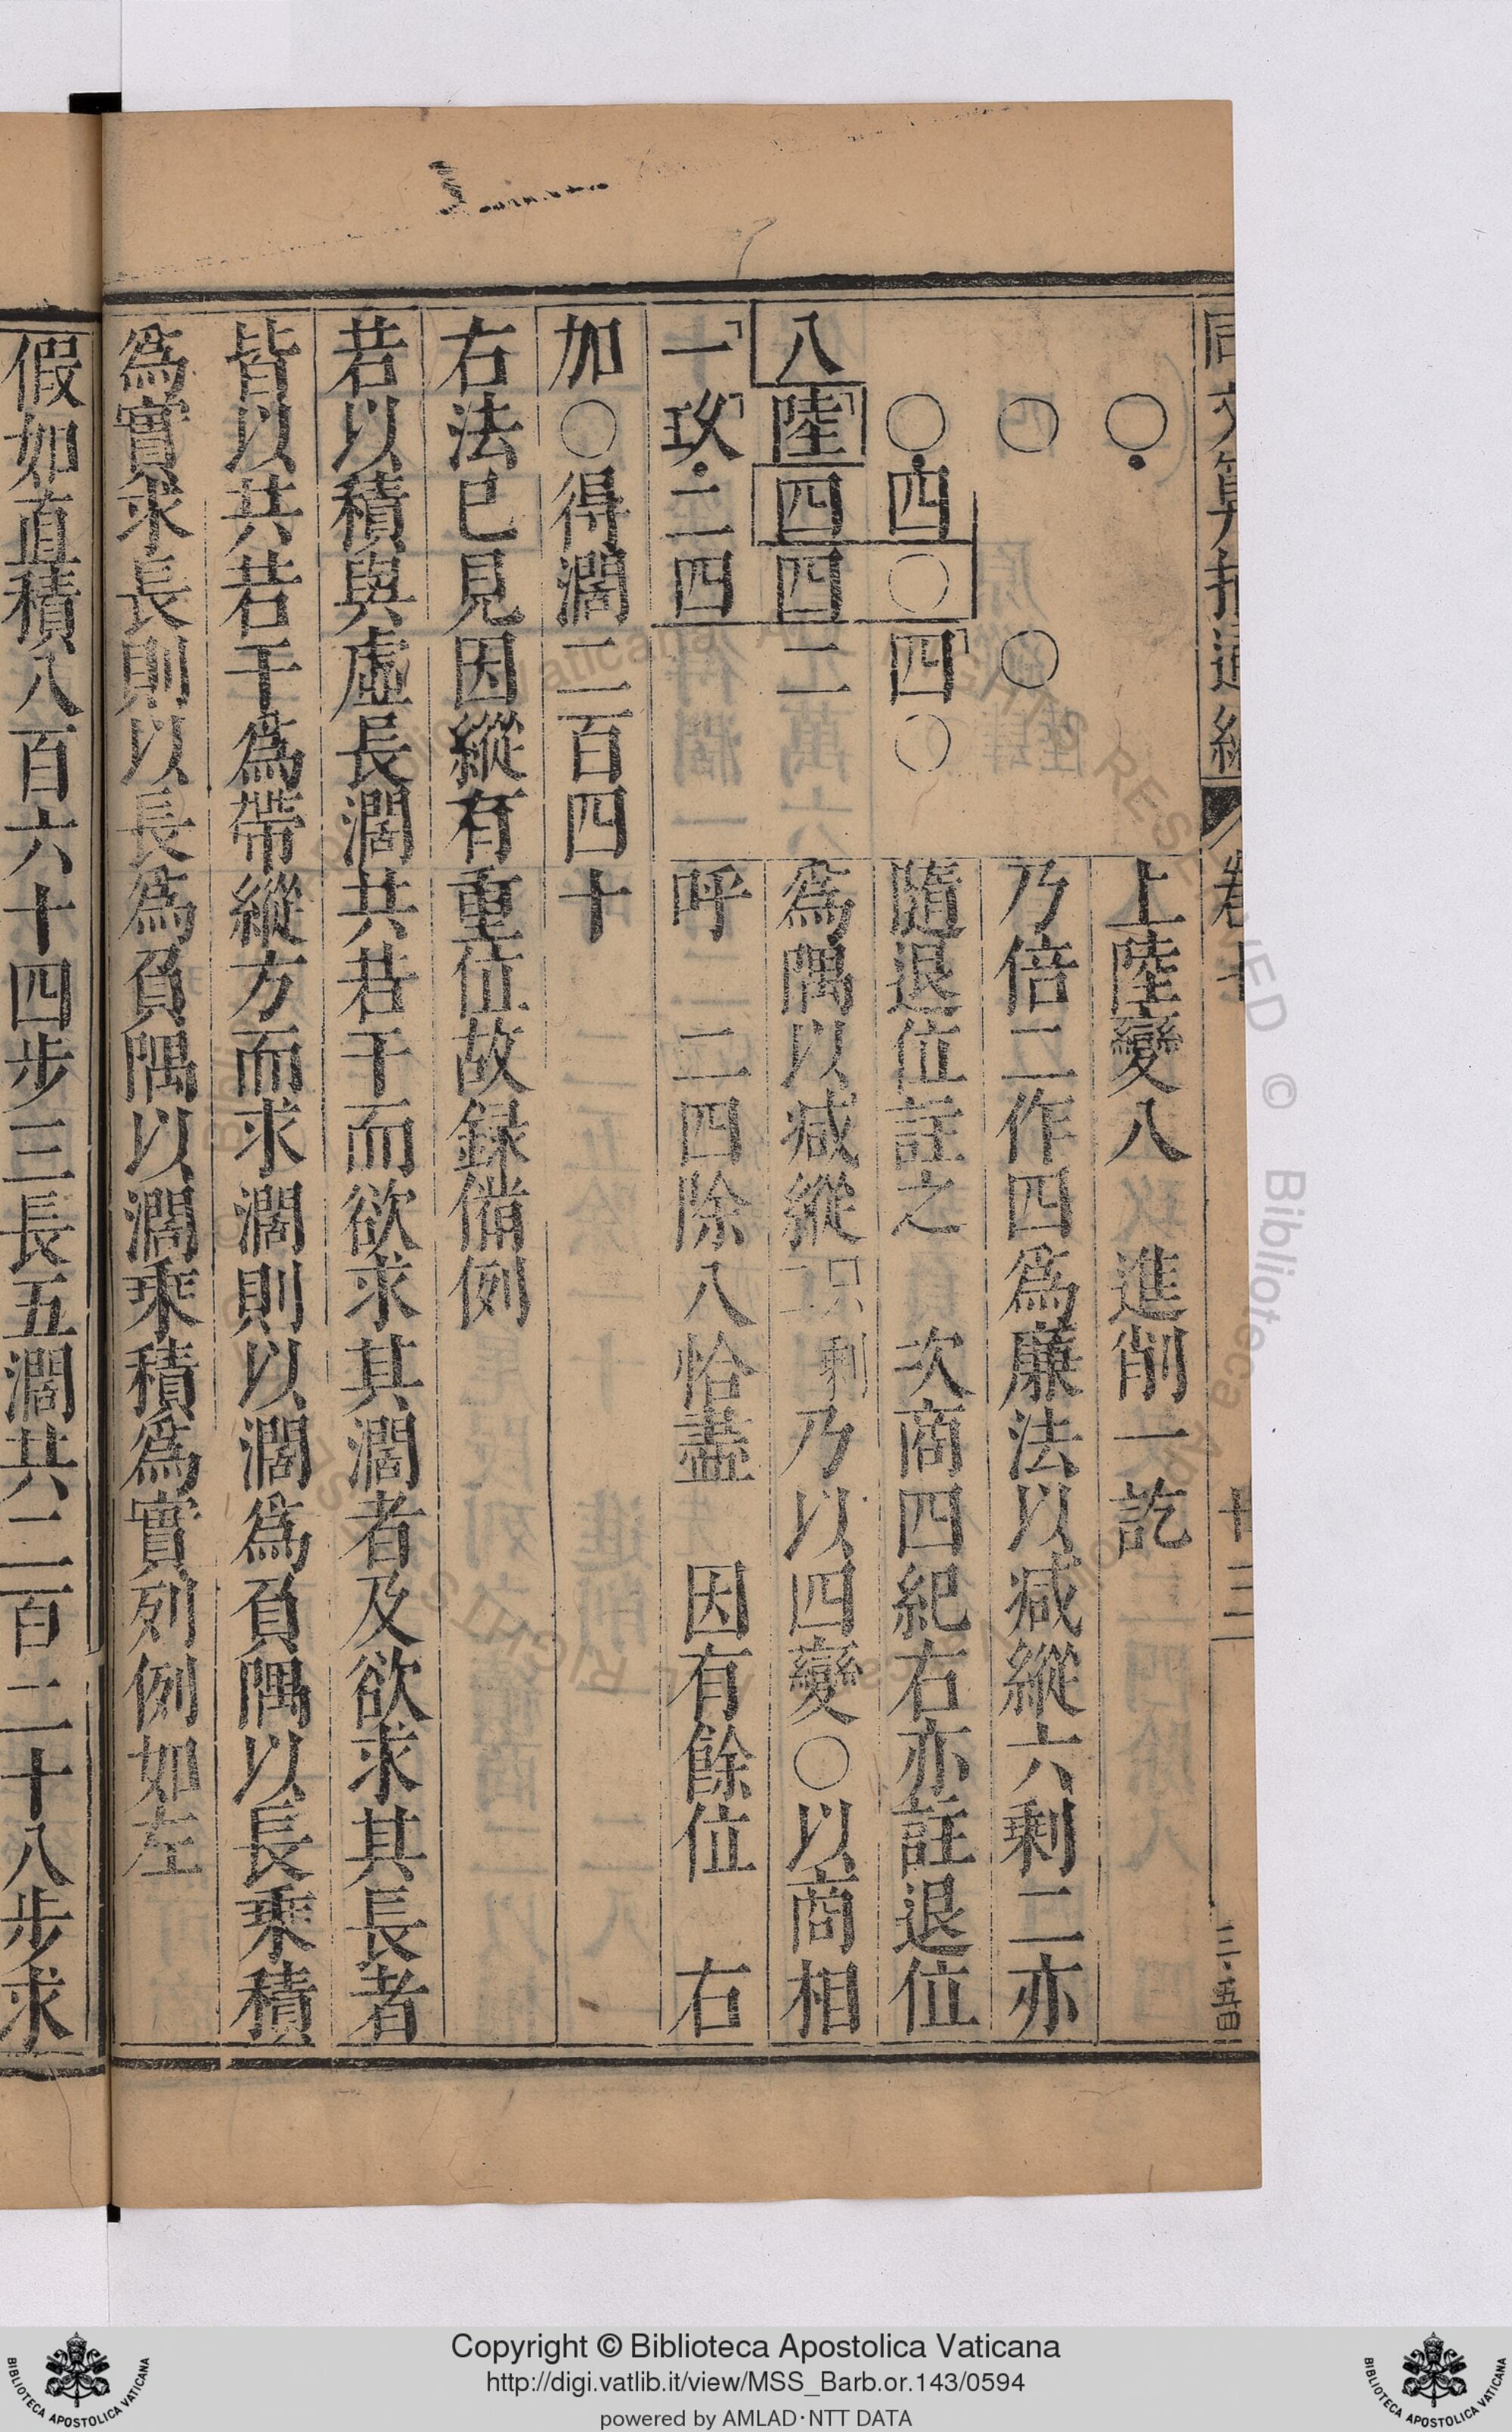 上陸變八　進削一訖
乃倍二作四爲廉法以减縱六剩二亦
隨退位註之　次商四紀右亦註退位
爲隅以减縱　剩　乃以四變〇以商相
呼　二四除八恰盡　因有餘位　右
〇
〇　〇
〇四〇四〇
八陸四四二
一玫二四
加〇得濶二百四十
右法已見因縱有重位故録備例
若以積與虛長濶共若干而欲求其濶者及欲求其長者
皆以共若干爲帶縱方而求濶則以濶爲負隅以長乘積
爲實求長則以長爲負隅以濶乘積爲實列例如左
假如直積八百六十四步三長五濶共二百二十八步求
Copyright © Biblioteca Apostolica Vaticana
http://digi.vatlib.it/view/MSS_Barb.or.143/0594
powered by AMLAD·NTT DATA
BIBLIOTECA APOSTOLICA VATICANA
BIBLIOTECA APOSTOLICA VATICANA